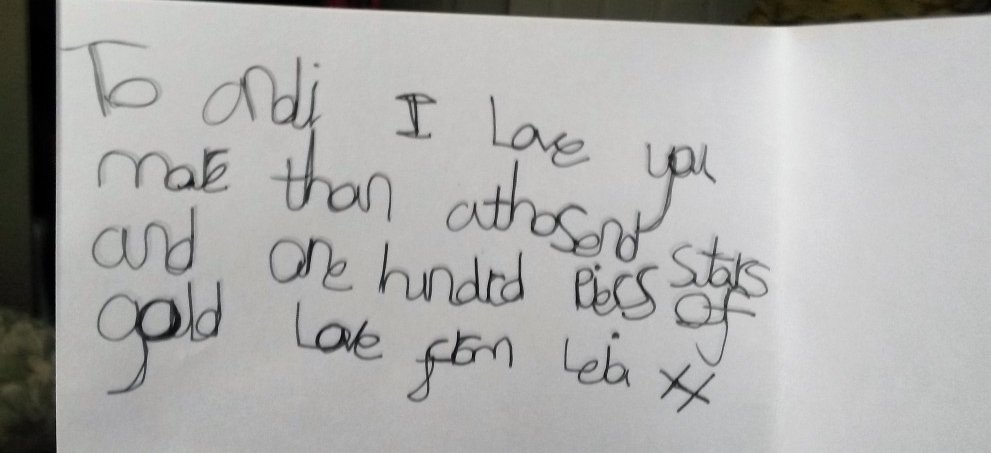 To andi I Love you
more than athosond stars
and one hundrd pics of
gold Love from Leia xx